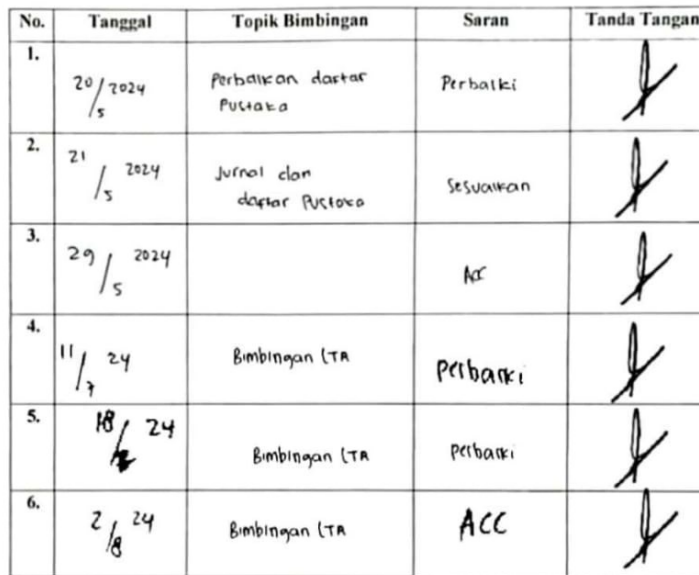 No. Tanggal Topik Bimbingan Saran Tanda Tangan
1.
20/5 2024 Perbaikan daftar Perbaiki
Pustaka
2.
21/5 2024 Jurnal dan Sesuaikan
daftar Pustaka
3.
29/5 2024 Acc
4.
11/7 24 Bimbingan LTA Perbaiki
5.
18/ 24 Bimbingan LTA Perbaiki
6.
2/8 24 Bimbingan LTA ACC